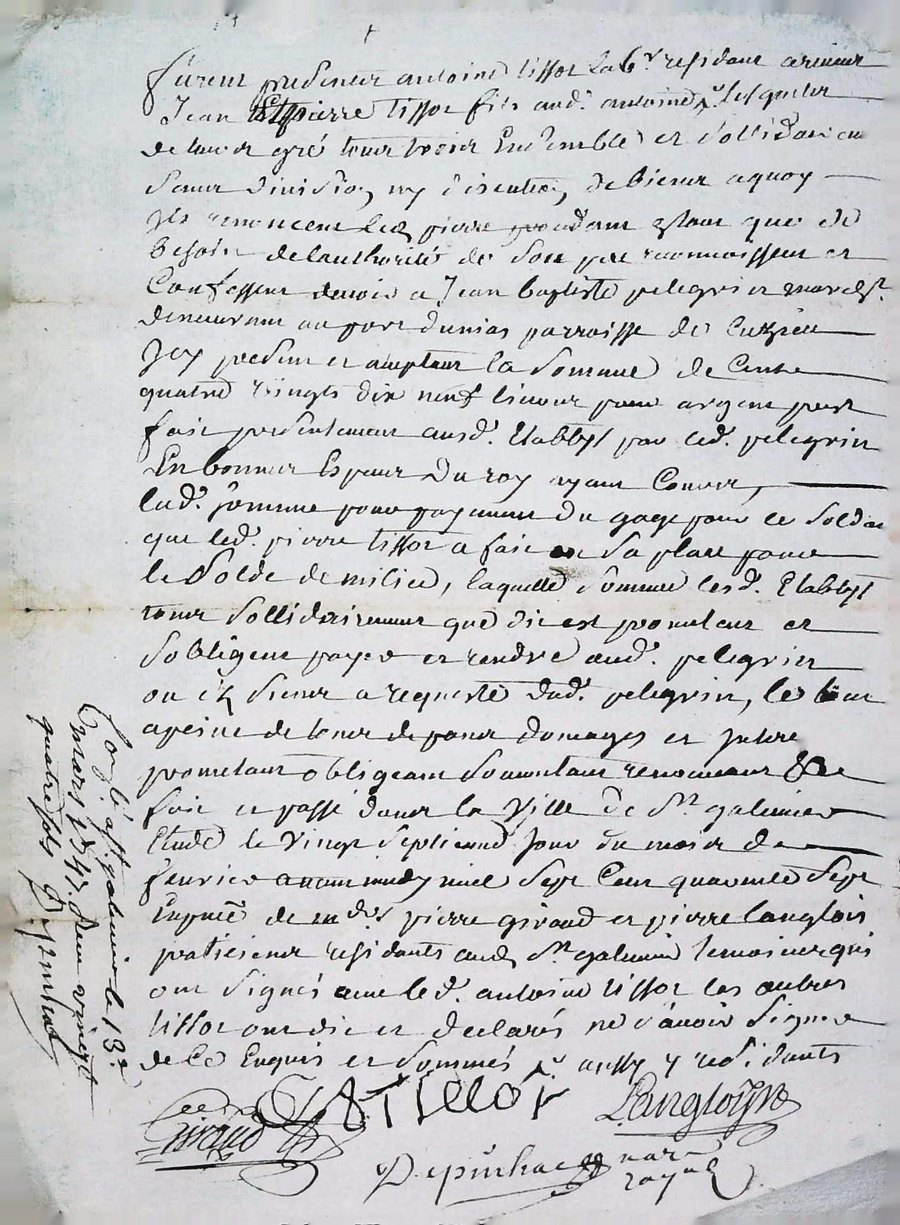 furent presentes antoine tissot lab.r residant a rineur
Jean Et pierre tissot fils aud. antoine lesquels
de leur gré tous trois Ensemble et sollidairem
sans division ny discution de biens a quoy
ils renoncent led. pierre procedant Estant que de
besoin de lauthorité de son pere reconnoissent et
Confessent devoir a Jean baptiste pelegrin march.t
demeurant au port dunias parroisse de Cuzieu
Icy present et acceptant la somme de Cent
quatre vingts dix neuf livres pour argent prest
fait presentement ausd. Etablys par led. pelegrin
En bonnes Especes du roy ayant Cours,
lad. somme pour payement du gage pour le soldat
que led. pierre tissot a fait en sa place pour
le solde de milice, laquelle somme lesd. Etablys
tous sollidairement que dit est promettent et
sobligent payer et rendre aud. pelegrin
ou ez siens a requeste dud. pelegrin, le tout
a peine de tous depens domages et Interes
prometant obligeant soumetant renonceant &c
fait et passé dans la Ville de St galmier
Etude le Vingt septieme Jour du mois de
fevrier mil sept Cent quarente sept
En presence de pierre giraud et pierre langlois
praticiens residants aud. St galmier temoins qui
ont signés avec led. antoine tissot les autres
tissot ont dit et declarés ne sçavoir signer
de ce Enquis et sommés aussy y residants
Giraud A Tissot Langloys
Depinhac not.re
royal
Conlé a St galmier le 13e
mars 1747. Reçu vingt
quatre sols Depinhac